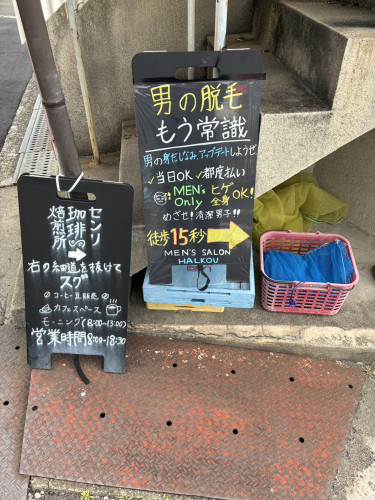 男の脱毛
もう常識
男の身だしなみ、アップデートしようぜ
✓当日OK ✓都度払い
MEN's Only
ヒゲ 全身 OK!
めざせ!清潔男子!!
徒歩15秒
MEN'S SALON
HALKOU
センリ
珈琲の
焙煎所
右の細道を抜けて
スグ
コーヒー豆販売
カフェスペース
モーニング(8:00~13:00)
営業時間8:00-18:30